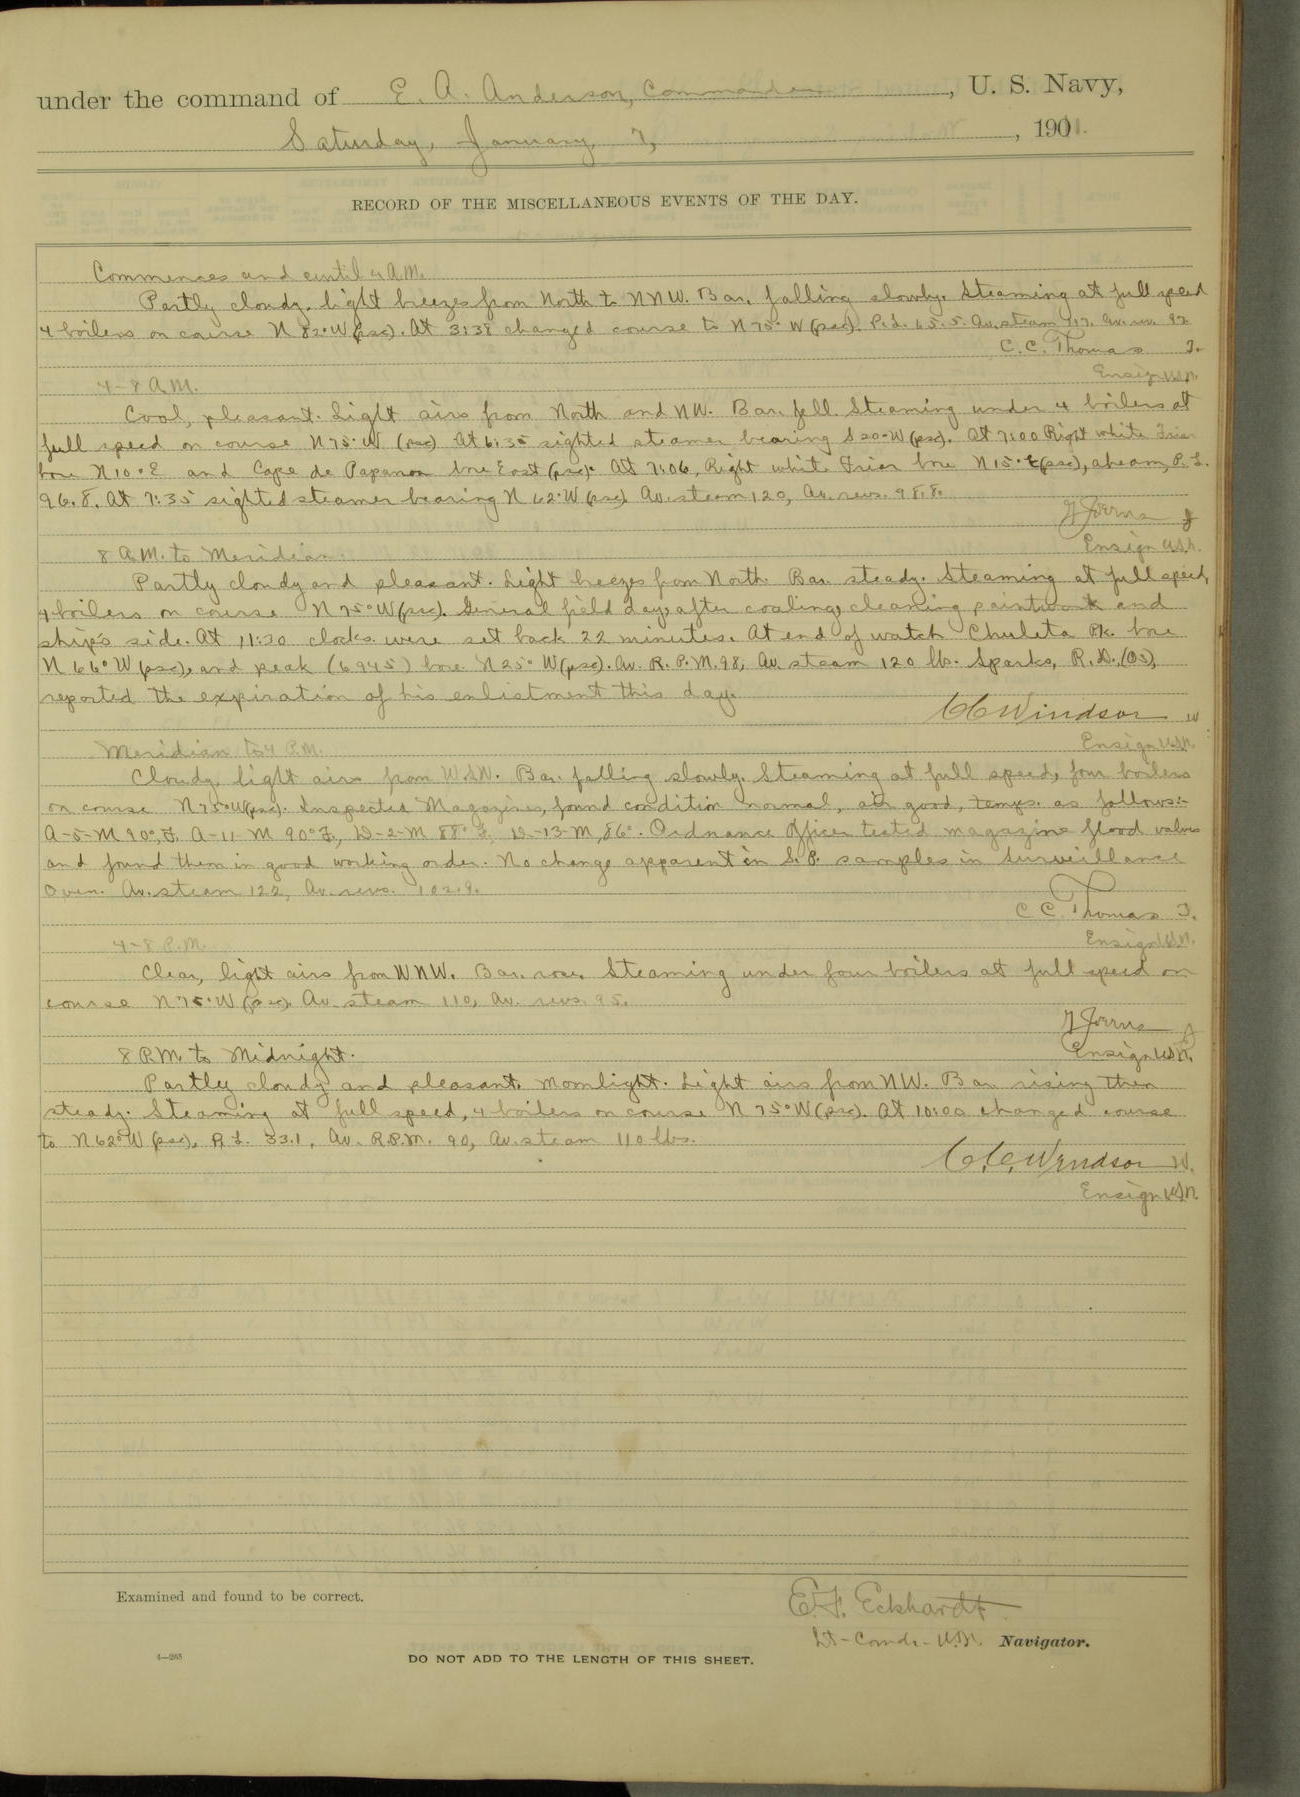 under the command of E. A. Anderson, Commander, U. S. Navy,
Saturday, January 7, 1911.
RECORD OF THE MISCELLANEOUS EVENTS OF THE DAY.
Commences and until 4 A.M.
Partly cloudy, light breezes from North to NNW. Bar. falling slowly. Steaming at full speed
4 boilers on course N 82° W (psc). At 3:38 changed course to N 75° W (psc). P.L. 65.5. Av. steam 117, av. rev. 92
C.C. Thomas T.
Ensign U.S.N.
4-8 A.M.
Cool, pleasant. Light airs from North and NW. Bar. fell. Steaming under 4 boilers at
full speed on course N 75° W (psc) At 6:35 sighted steamer bearing S 20° W (psc). At 7:00 Right white Friar
bore N 10° E and Cape de Papanon bore East (psc). At 7:06, Right white Friar bore N 15° E (psc), abeam, P.L.
96.8. At 7:35 sighted steamer bearing N 62° W (psc) Av. steam 120, Av. revs. 98.8.
J
Ensign U.S.N.
8 A.M. to Meridian.
Partly cloudy and pleasant. Light breezes from North. Bar. steady. Steaming at full speed,
4 boilers on course N 75° W (psc). General field day, after coaling, cleaning paintwork and
ship's side. At 11:30 clocks were set back 22 minutes. At end of watch Chuleta Pk. bore
N 66° W (psc), and peak (6945) bore N 25° W (psc). Av. R.P.M. 98, Av. steam 120 lb. Sparks, R.D. (OS),
reported the expiration of his enlistment this day.
CC Windsor W
Ensign U.S.N.
Meridian to 4 P.M.
Cloudy, light airs from WSW. Bar. falling slowly. Steaming at full speed, four boilers
on course N 75° W (psc). Inspected Magazines, found condition normal, air good, temps. as follows:-
A-5-M 90° F, A-11-M 90° F, D-2-M 88° F, D-13-M, 86°. Ordnance Officer tested magazine flood valves
and found them in good working order. No change apparent in S.P. samples in Surveillance
Oven. Av. steam 122, Av. revs. 102.9.
C C Thomas T.
Ensign U.S.N.
4-8 P.M.
Clear, light airs from WNW. Bar. rose. Steaming under four boilers at full speed on
course N 75° W (psc). Av. steam 110, Av. revs. 95.
J
Ensign U.S.N.
8 P.M. to Midnight.
Partly cloudy and pleasant. Moonlight. Light airs from NW. Bar. rising then
steady. Steaming at full speed, 4 boilers on course N 75° W (psc). At 10:00 changed course
to N 62° W (psc), P.L. 33.1, Av. R.P.M. 90, Av. steam 110 lbs.
C.C. Windsor W.
Ensign U.S.N.
Examined and found to be correct.
E.F. Eckhardt
Lt-Comdr-U.S.N. Navigator.
4-265
DO NOT ADD TO THE LENGTH OF THIS SHEET.